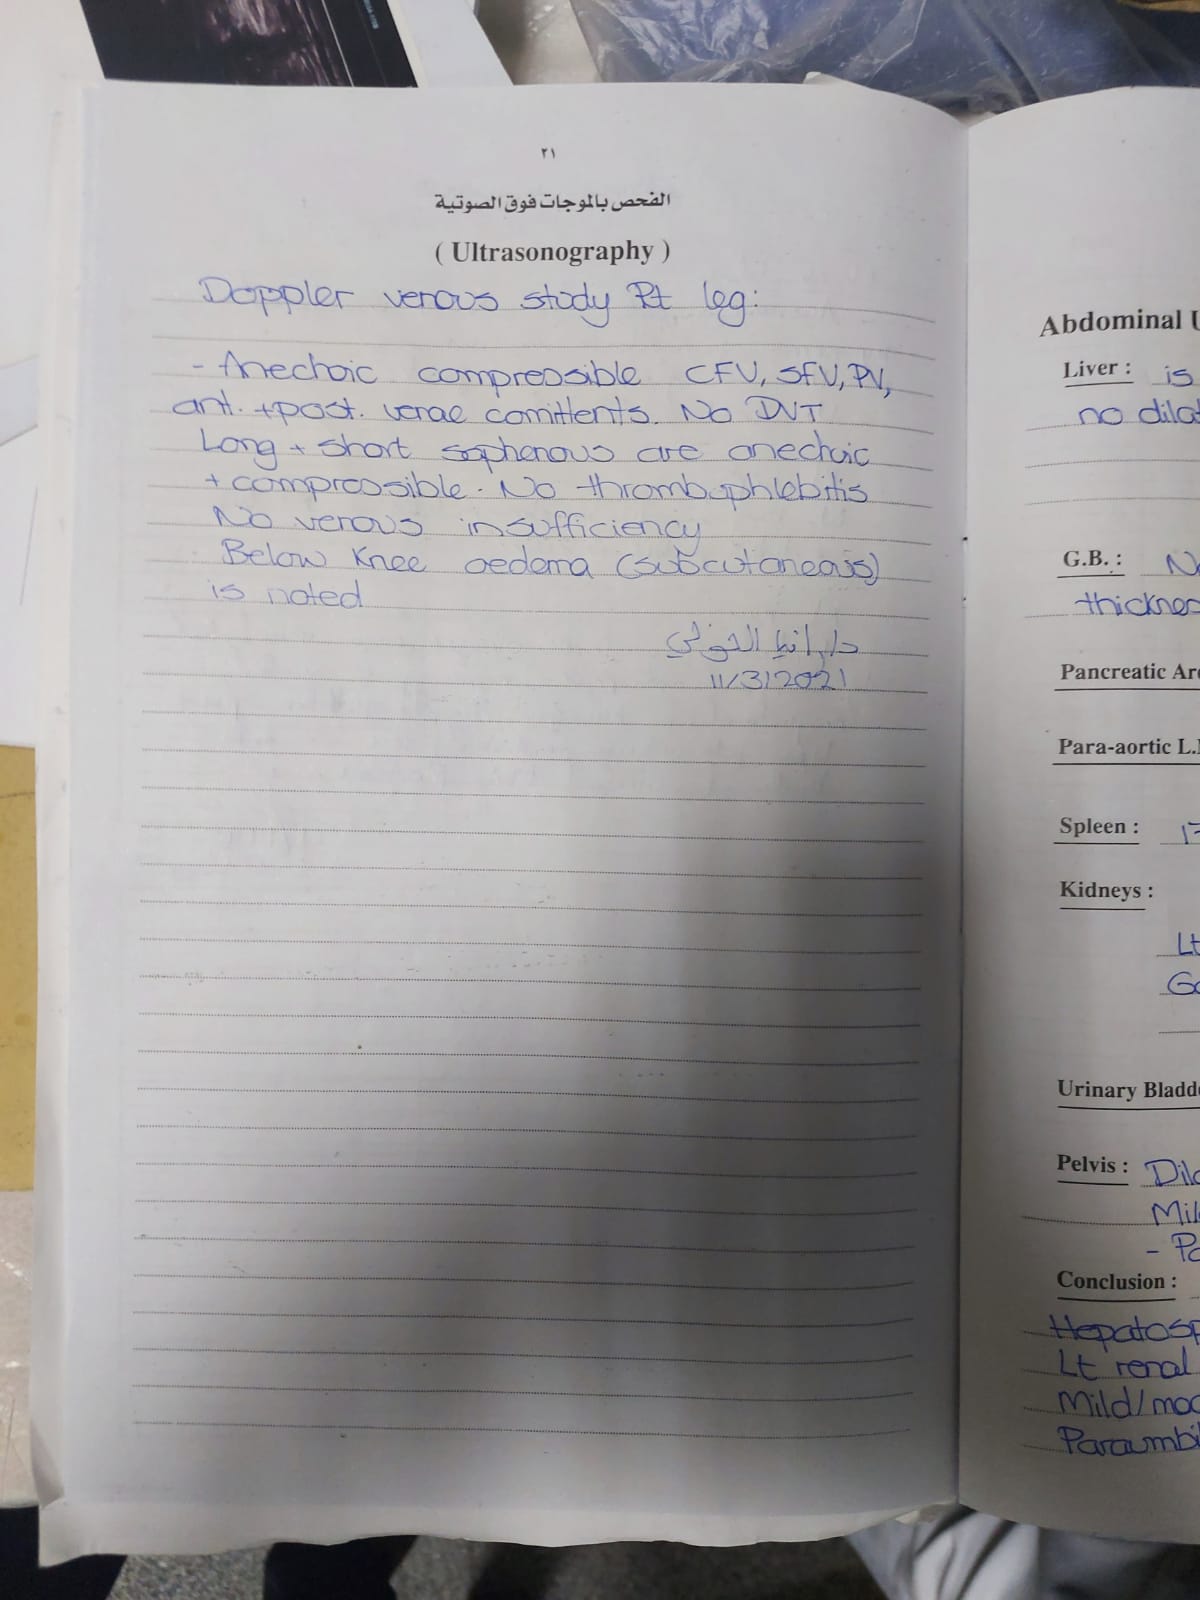 ٢١
الفحص بالموجات فوق الصوتية
( Ultrasonography )
Doppler venous study Rt leg:
- Anechoic compressible CFV, SFV, PV,
ant. + post. venae comittents. No DVT
Long + short saphenous are anechoic
+ compressible. No thrombophlebitis
No venous insufficiency
Below Knee oedema (subcutaneous)
is noted
د/رانيا الخولي
11/3/2021
Abdominal U
Liver : is
no dilat
G.B. : No
thicknes
Pancreatic Are
Para-aortic L.
Spleen : 17
Kidneys :
Lt
Urinary Bladde
Pelvis : Dila
Mil
Conclusion :
Hepatosp
Lt renal
Mild/mod
Paraumbil